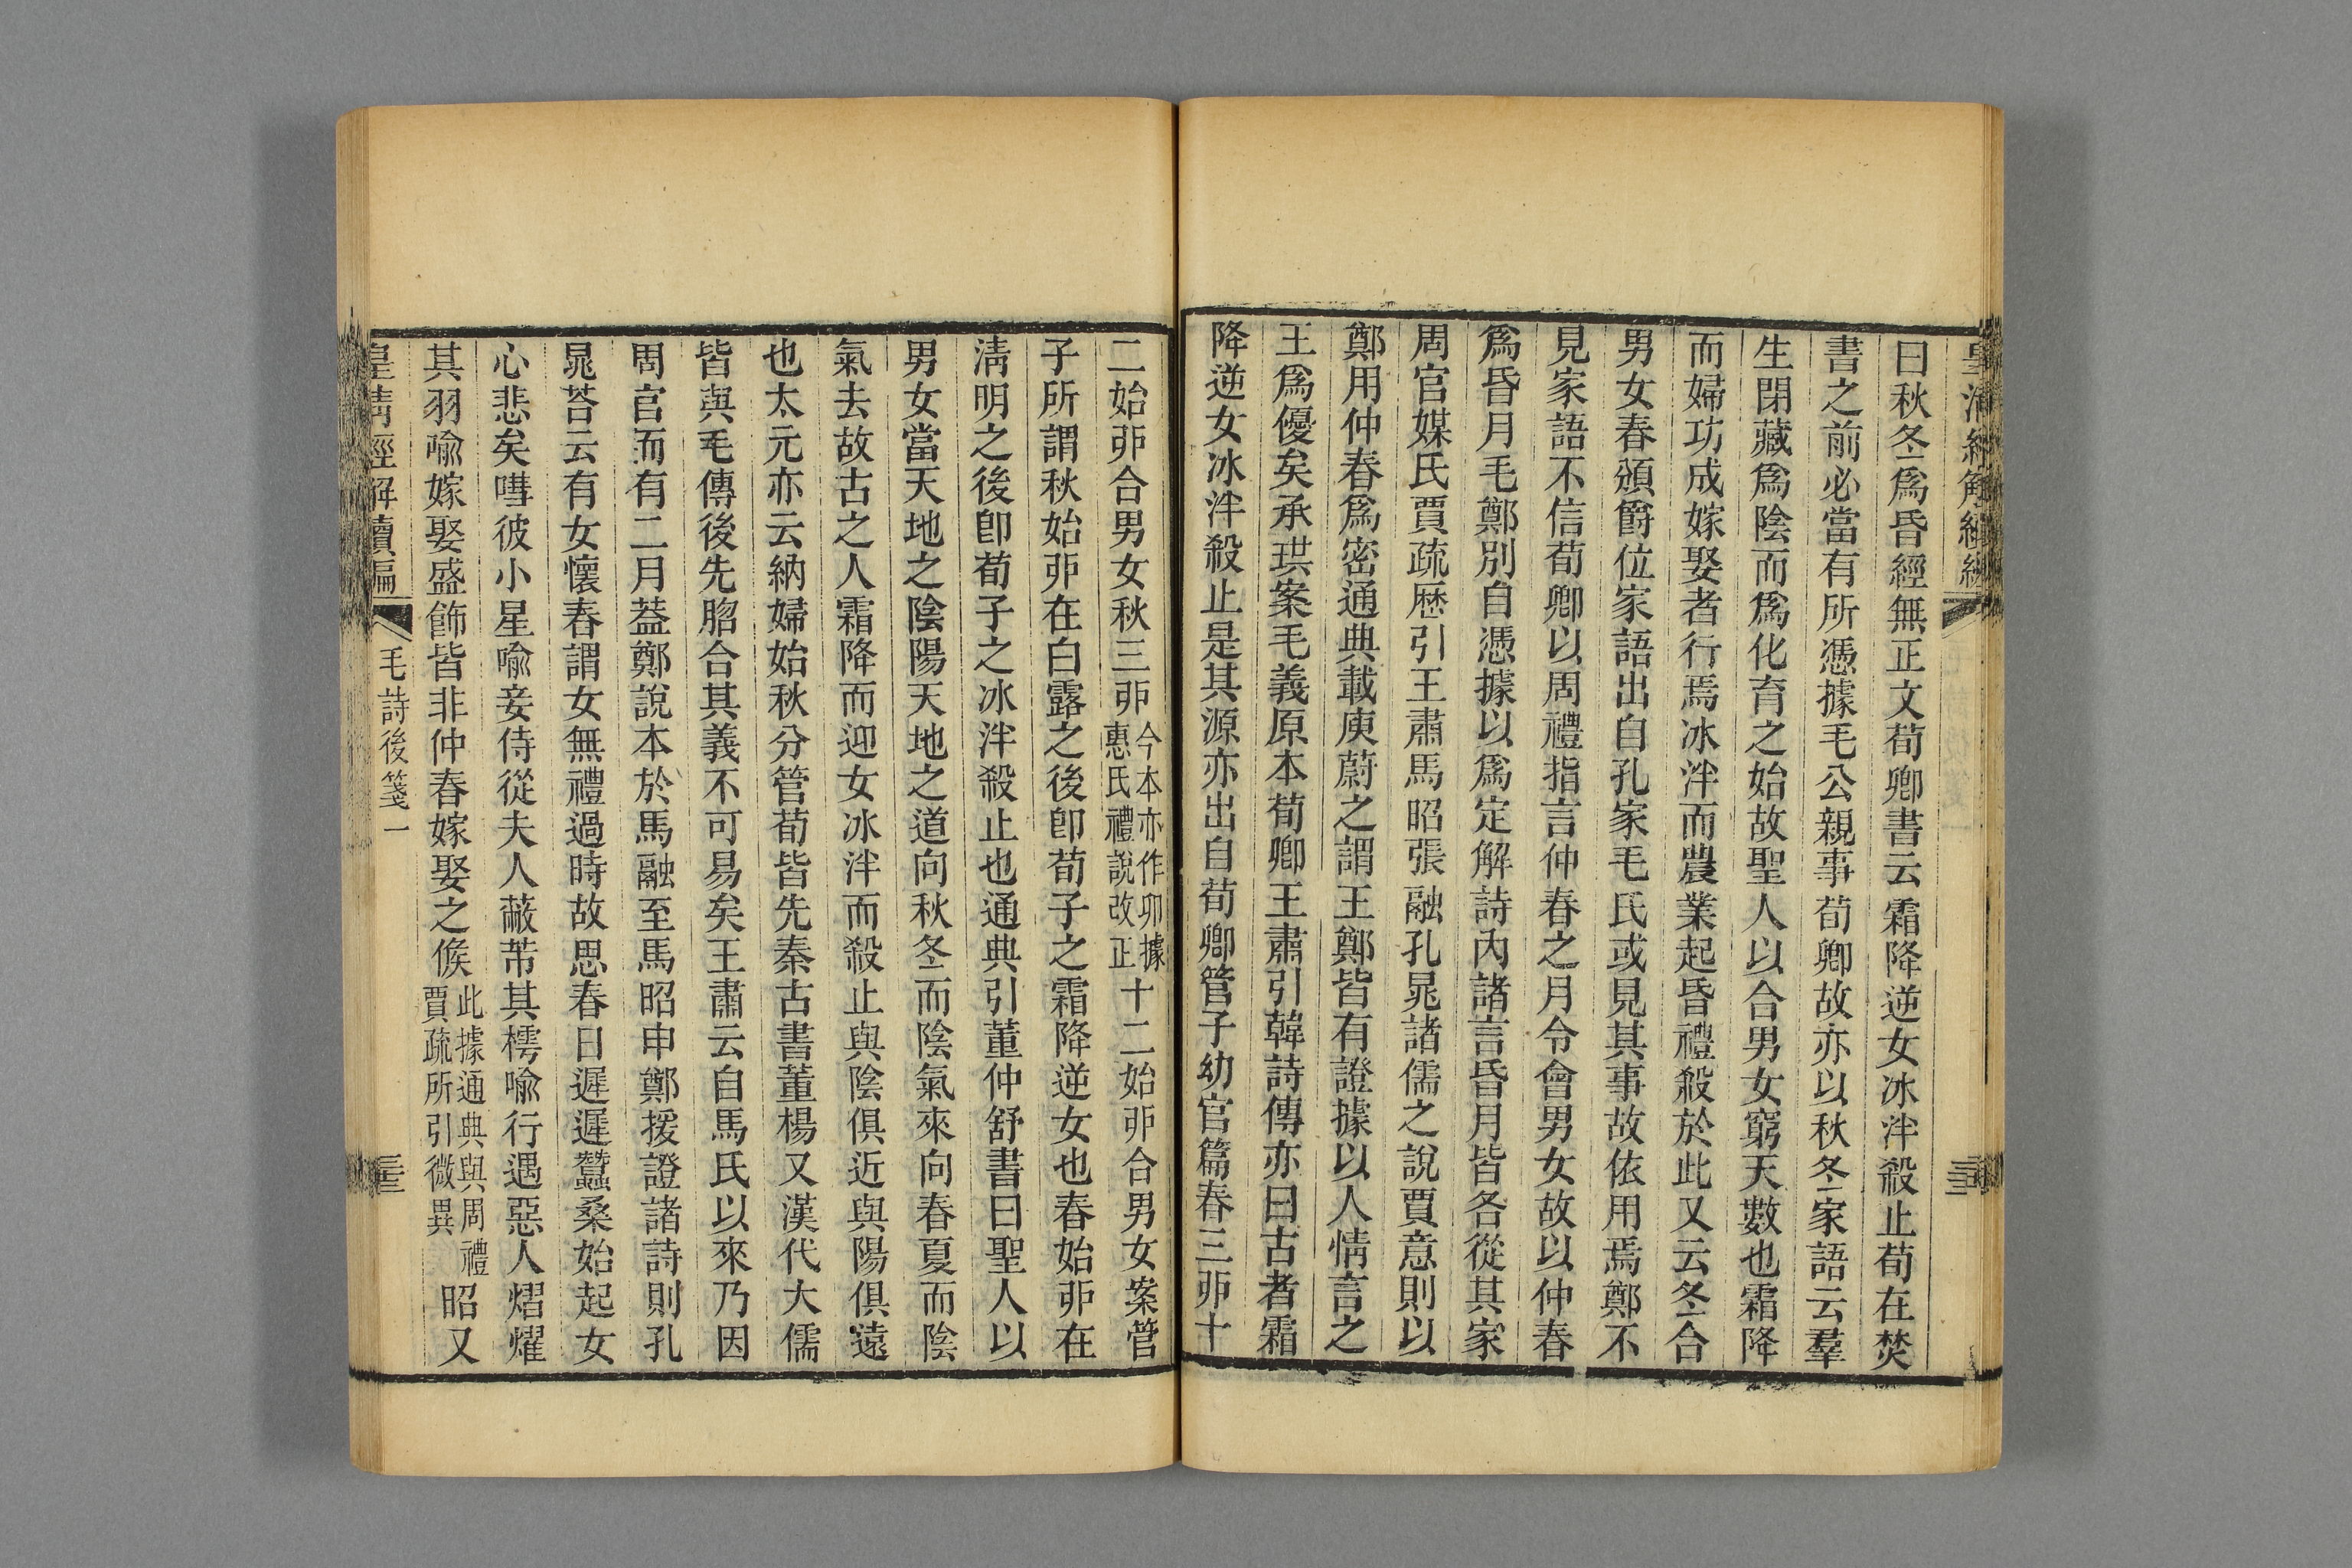 曰秋冬爲昏經無正文荀卿書云霜降逆女冰泮殺止荀在焚
書之前必當有所憑據毛公親事荀卿故亦以秋冬家語云羣
生閉藏爲陰而爲化育之始故聖人以合男女窮天數也霜降
而婦功成嫁娶者行焉冰泮而農業起昏禮殺於此又云冬合
男女春頒爵位家語出自孔家毛氏或見其事故依用焉鄭不
見家語不信荀卿以周禮指言仲春之月令會男女故以仲春
爲昏月毛鄭別自憑據以爲定解詩內諸言昏月皆各從其家
周官媒氏賈疏歷引王肅馬昭張融孔晁諸儒之說賈意則以
鄭用仲春爲密通典載庾蔚之謂王鄭皆有證據以人情言之
王爲優矣承珙案毛義原本荀卿王肅引韓詩傳亦曰古者霜
降逆女冰泮殺止是其源亦出自荀卿管子幼官篇春三戼十
二始戼合男女秋三戼今本亦作卯據惠氏禮說改正十二始戼合男女案管
子所謂秋始戼在白露之後卽荀子之霜降逆女也春始戼在
淸明之後卽荀子之冰泮殺止也通典引董仲舒書曰聖人以
男女當天地之陰陽天地之道向秋冬而陰氣來向春夏而陰
氣去故古之人霜降而迎女冰泮而殺止與陰俱近與陽俱遠
也太元亦云納婦始秋分管荀皆先秦古書董楊又漢代大儒
皆與毛傳後先脗合其義不可易矣王肅云自馬氏以來乃因
周官而有二月葢鄭說本於馬融至馬昭申鄭援證諸詩則孔
晁荅云有女懷春謂女無禮過時故思春日遲遲蠶桑始起女
心悲矣嘒彼小星喻妾侍從夫人蔽芾其樗喻行遇惡人熠燿
其羽喻嫁娶盛飾皆非仲春嫁娶之候此據通典與周禮賈疏所引微異昭又
皇淸經解續編 毛詩後箋一